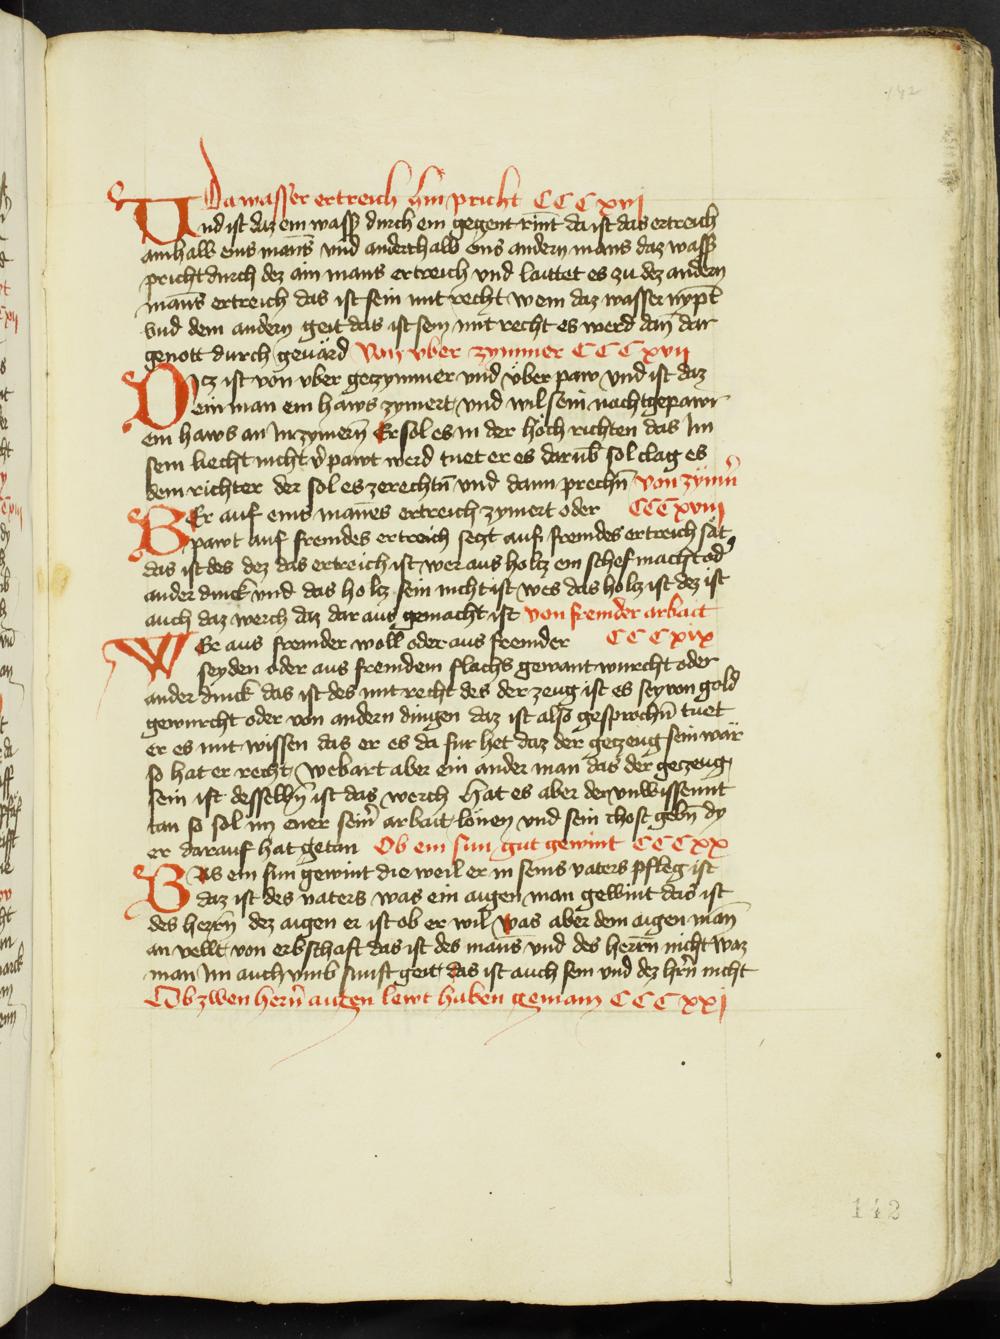 142
Da wasser ertreich hin pricht CCCxvi
Und ist daz ein wass durch ein gegent rint da ist das ertreich
ainhalb eins mans und anderthalb eins andern mans daz wass
pricht durch dez ain mans ertreich und laittet es zu dez andern
mans ertreich das ist sein mit recht wem daz wasser nympt
und dem andern geit das ist sein mit recht es werd dan dar
genott durch geuärd Von vber zymmer CCCxvii
Ditz ist von vber getzymmer und über paw und ist daz
ein man ein haws zymert und wil sein nachtgepawr
ein haws an Im zymern Er sol es in der höch richten das Im
sein liecht nicht vpawt werd tuet er es darub sol clag es
dem richter der sol es zerechtn und dann prechn von zymn
Wer auf eins mannes ertreich zymert oder CCCxviii
pawt auf fremdes ertreich setzt auf fremdes ertreich sät
das ist des dez das ertreich ist wer aus holtz ein schef macht od
ander dinck und das holtz sein nicht ist wes das holtz ist dez ist
auch daz werch daz dar aus gemacht ist von fremder arbait
Wer aus fremder woll oder aus fremder CCCxix
seyden oder aus fremdem flachs gewant wurcht oder
ander dinck das ist des mit recht des der zeug ist es sey von gold
gewurcht oder von andern dingen daz ist also gesprochn tuet
er es mit wissen das er es da fur het daz der getzeug sein wär
so hat er recht, Webart aber ein ander man das der getzeug
sein ist desselbn ist das werch Hat es aber der unwissennt
tan so sol im ener seinr arbait lönen und sein chost gebn dy
er darauf hat getan Ob ein sun gut gewint CCCxx
Was ein sun gewint die weil er in seins vaters pfleg ist
daz ist des vaters was ein aigen man gewint das ist
des herrn dez aigen er ist ob er wil was aber dem aigen man
an vellt von erbschaft das ist des mans und des herrn nicht waz
man Im auch umb sunst geit das ist auch sein und dez hrn nicht
Ob zwen hern aigen lewt haben gemain CCCxxi
142